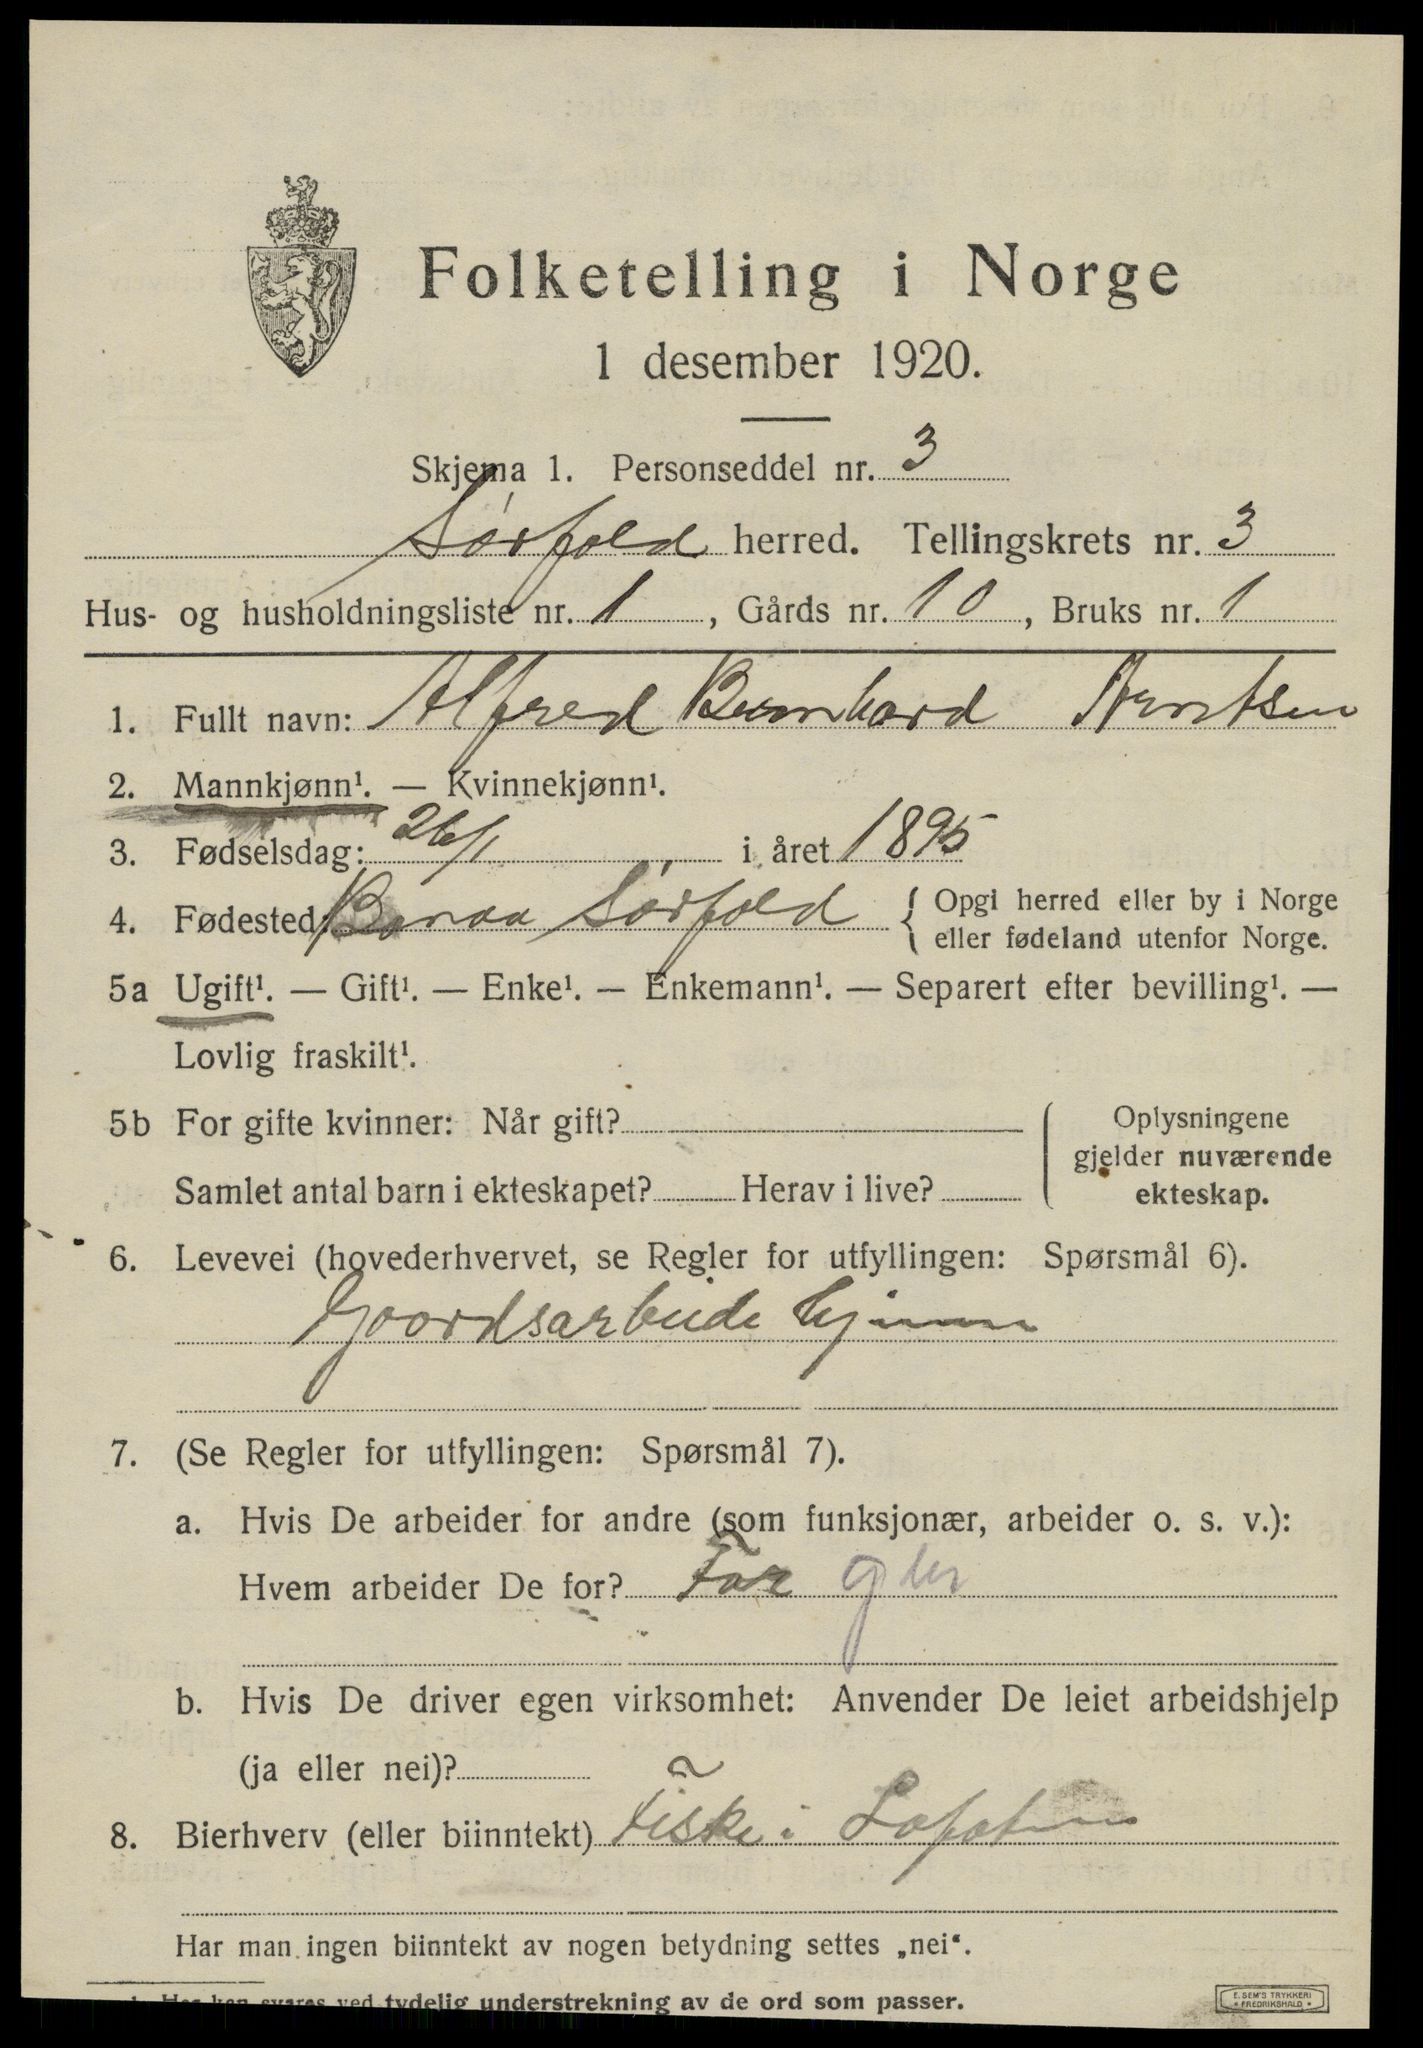 Folketelling i Norge
1 desember 1920.
Skjema 1. Personseddel nr. 3
Sørfold herred. Tellingskrets nr. 3
Hus- og husholdningsliste nr. 1, Gårds nr. 10, Bruks nr. 1
1. Fullt navn: Alfred Bernhard Arntsen
2. Mannkjønn¹. — Kvinnekjønn¹.
3. Fødselsdag: 26/1 i året 1895
4. Fødested: Sørfold { Opgi herred eller by i Norge
eller fødeland utenfor Norge.
5a Ugift¹. — Gift¹. — Enke¹. — Enkemann¹. — Separert efter bevilling¹. —
Lovlig fraskilt¹.
5b For gifte kvinner: Når gift?
Samlet antal barn i ekteskapet? Herav i live?
Oplysningene
gjelder nuværende
ekteskap.
6. Levevei (hovederhvervet, se Regler for utfyllingen: Spørsmål 6).
Gaardsarbeide hjemme
7. (Se Regler for utfyllingen: Spørsmål 7).
a. Hvis De arbeider for andre (som funksjonær, arbeider o. s. v.):
Hvem arbeider De for? Far
b. Hvis De driver egen virksomhet: Anvender De leiet arbeidshjelp
(ja eller nei)?
8. Bierhverv (eller biinntekt) Fiske i Lofoten
Har man ingen biinntekt av nogen betydning settes „nei“.
¹ Her kan svares ved tydelig understrekning av de ord som passer.
E. SEM'S TRYKKERI
* FREDRIKSHALD *